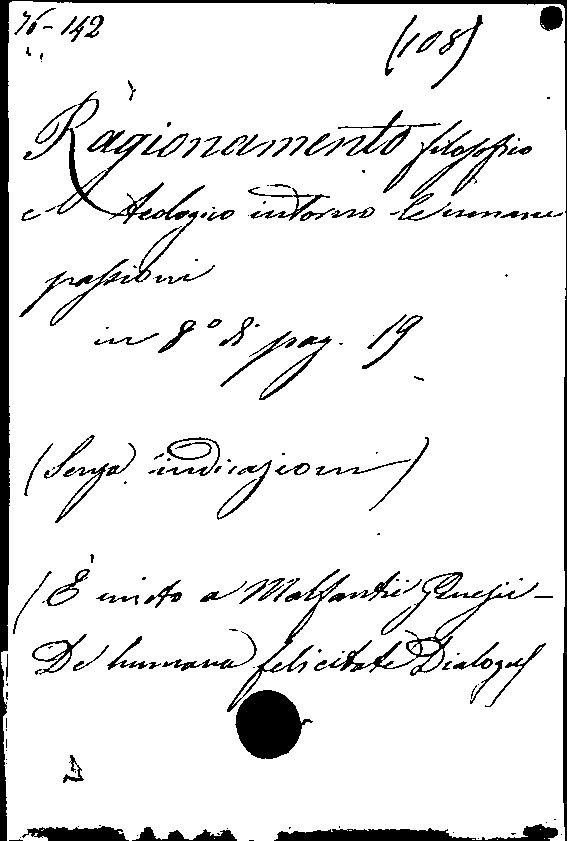 76-142
(108)
Ragionamento filosofico
teologico intorno le umane
passioni
in 8° di pag. 19
(Senza indicazioni)
(È unito a Malfantii
De humana felicitate Dialogus